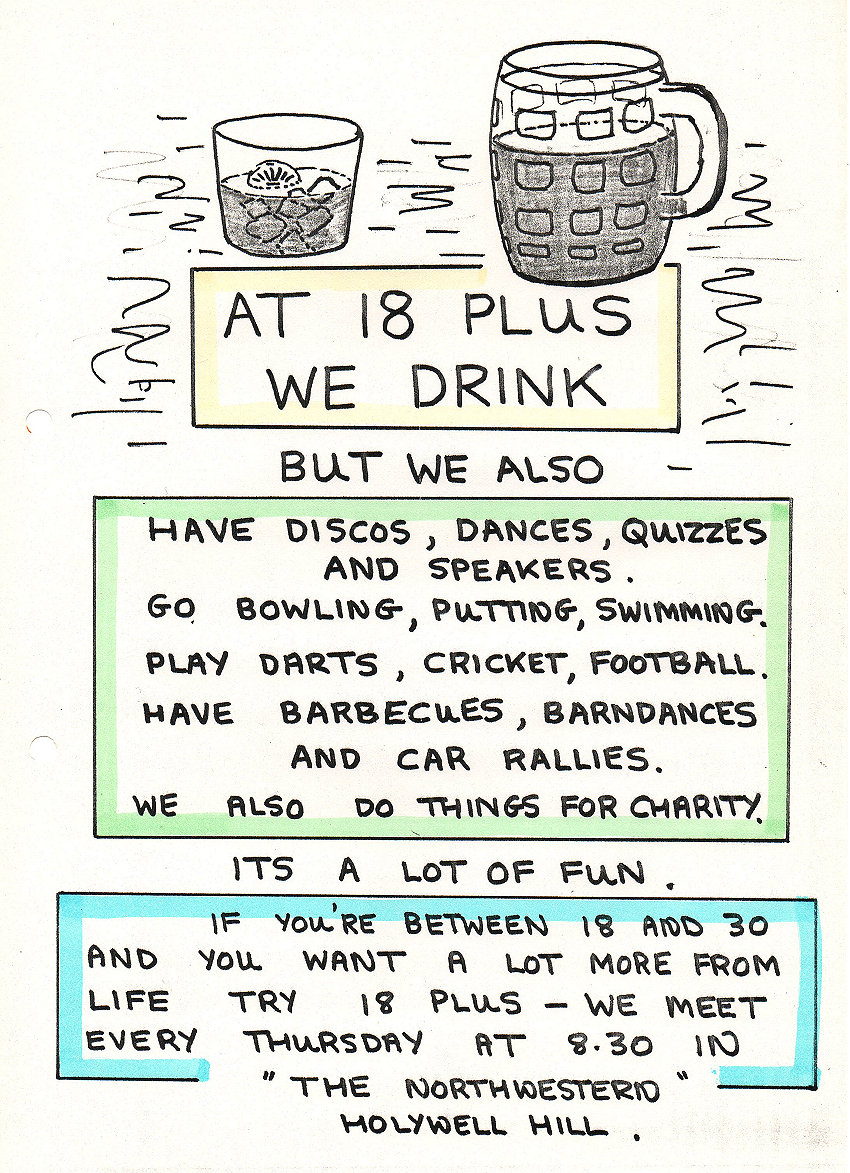 AT 18 PLUS
WE DRINK
BUT WE ALSO –
HAVE DISCOS, DANCES, QUIZZES
AND SPEAKERS.
GO BOWLING, PUTTING, SWIMMING.
PLAY DARTS, CRICKET, FOOTBALL.
HAVE BARBECUES, BARNDANCES
AND CAR RALLIES.
WE ALSO DO THINGS FOR CHARITY.
ITS A LOT OF FUN.
IF YOU'RE BETWEEN 18 AND 30
AND YOU WANT A LOT MORE FROM
LIFE TRY 18 PLUS – WE MEET
EVERY THURSDAY AT 8.30 IN
"THE NORTHWESTERN"
HOLYWELL HILL.